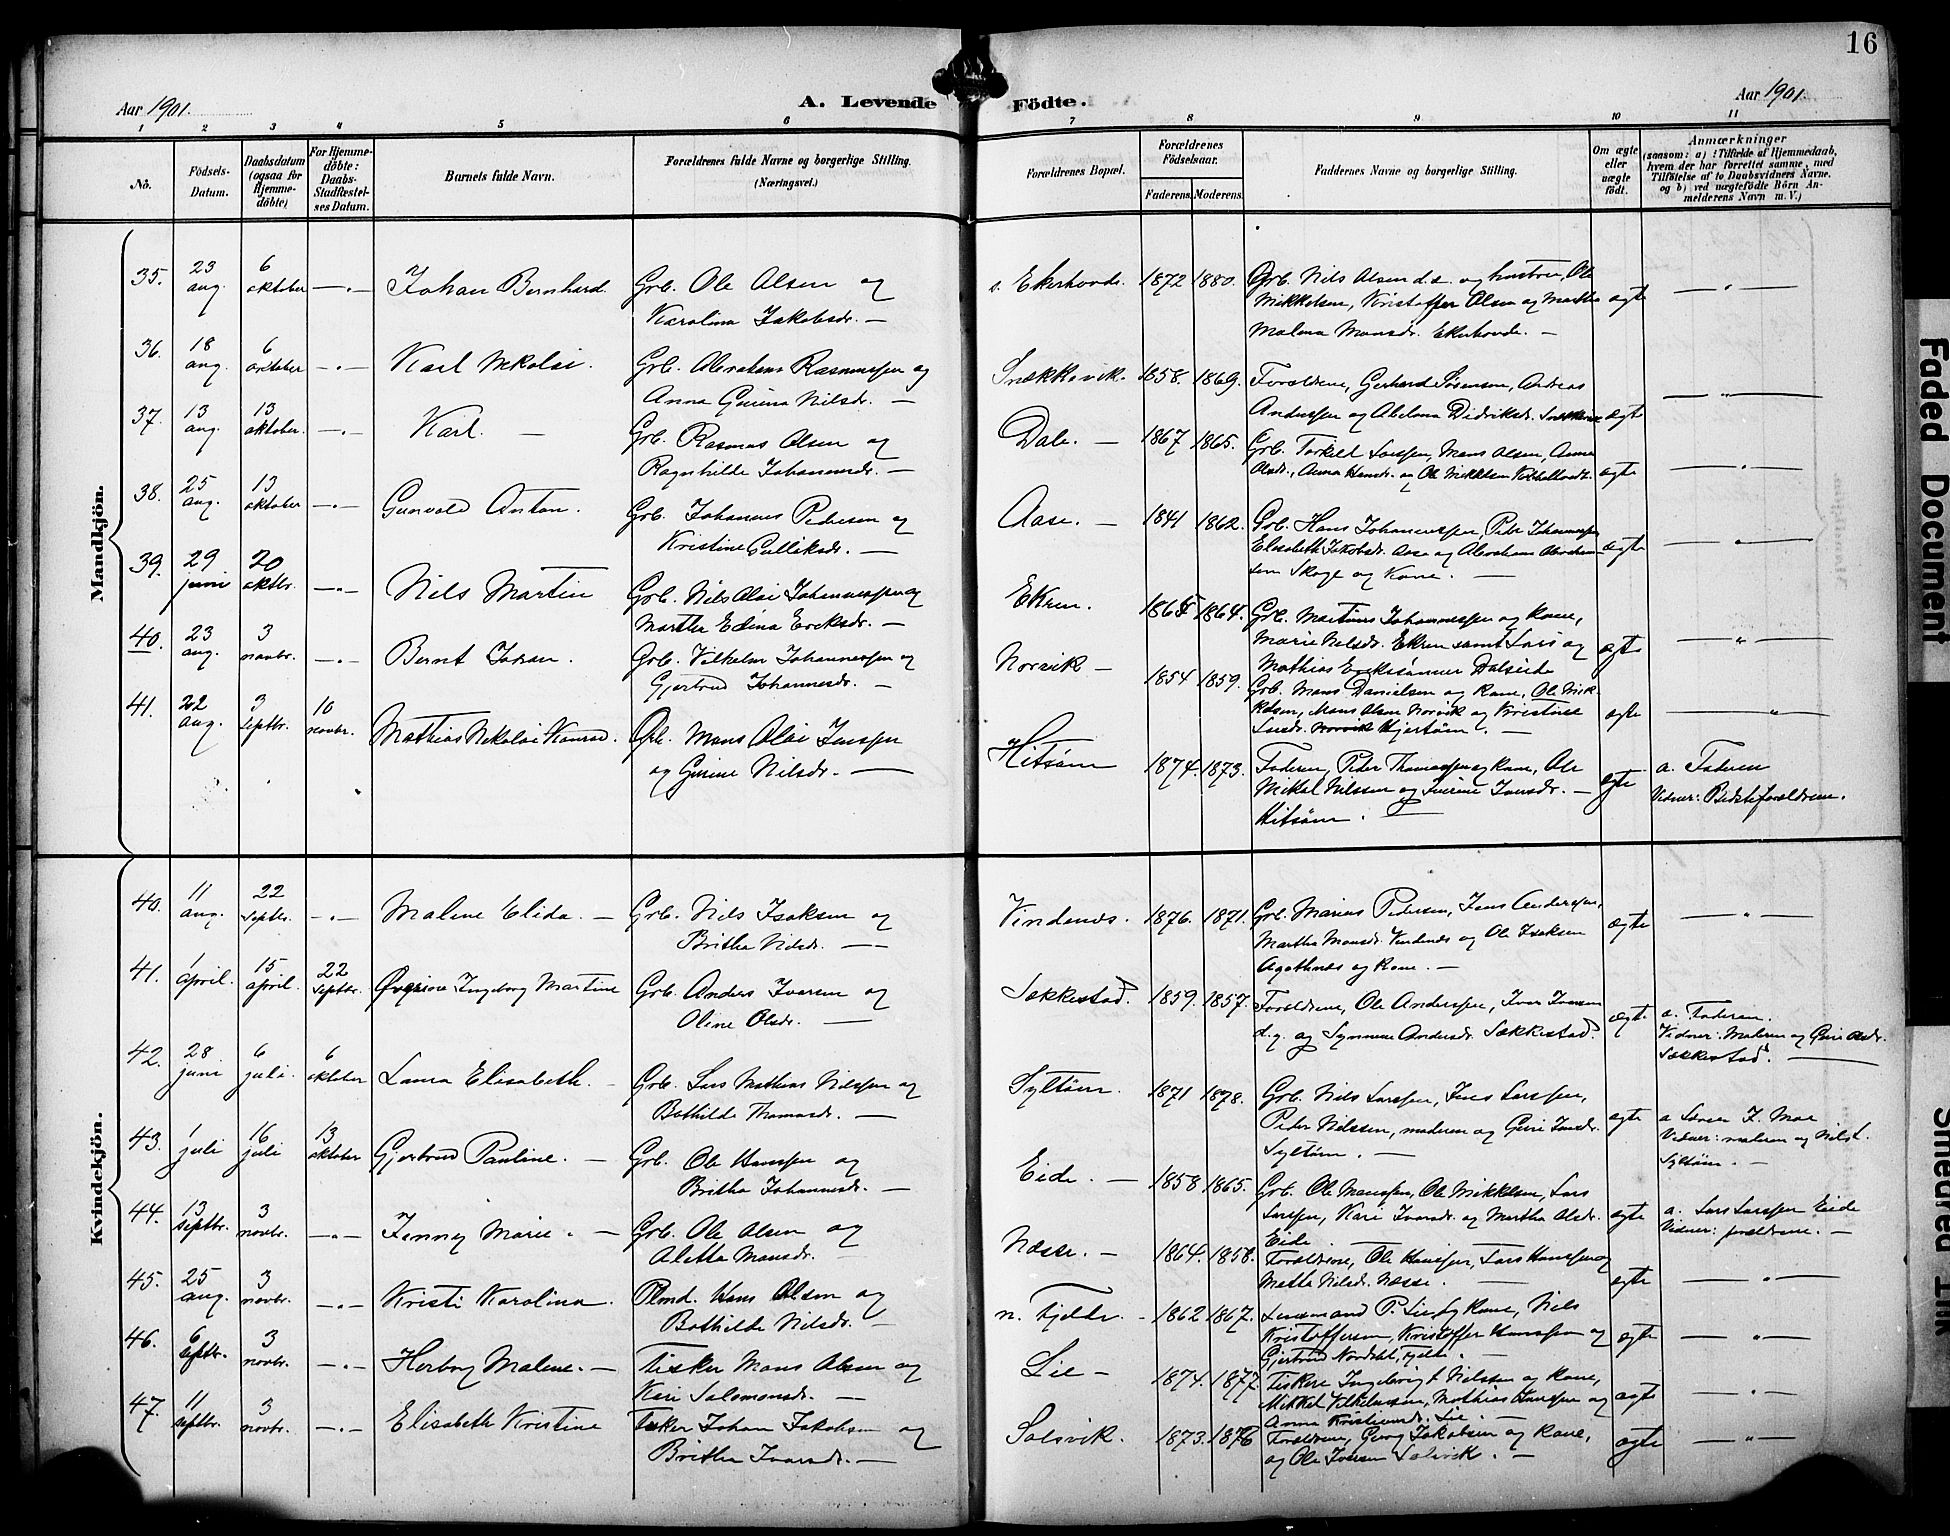 16
Aar 1901.
A. Levende Födte.
Aar 1901.
1 2 3 4 5 6 7 8 9 10 11
No.
Födsels-Datum.
Daabsdatum (ogsaa for Hjemme-döbte)
For Hjemme-döbte: Daabs-Stadfæstel-ses Datum.
Barnets fulde Navn.
Forældrenes fulde Navne og borgerlige Stilling.
(Næringsvei.)
Forældrenes Bopæl.
Forældrenes Födselsaar.
Faderens. Moderens.
Faddernes Navne og borgerlige Stilling.
Om ægte eller uægte födt.
Anmærkninger
(saasom: a) i Tilfælde af Hjemmedaab,
hvem der har forrettet samme, med
Tilföielse af to Daabsvidners Navne,
og b) ved uægtefödte Börn An-
melderens Navn m. V.)
Mandkjön.
35. 23 aug. 6 oktober —"— Johan Bernhard. Grb. Ole Olsen og
Karolina Jakobsdr. —
s. Ekerhovde. 1872 1880. Grb. Nils Olsen d.s. og hustru, Ole
Mikkelsen, Kristoffer Olsen og Martha
Malena Monsdr. Ekerhovde. —
ægte —"—
36. 18 aug. 6 oktober —"— Karl Nikolai. Grb. Abraham Rasmussen og
Anna Gurina Nilsdr. —
Snækkevik. 1858. 1869. Forældrene, Gerhard Sörensen, Andreas
Anderssen og Abelona Didriksdr.
ægte —"—
37. 13 aug. 13 oktober. —"— Karl. — Grb. Rasmus Olsen og
Ragnhilde Johannesdr. —
Dale. — 1867 1865. Grb. Torkild Larssen, Mons Olsen, Anna
Olsdr., Anna Hansdr. og Ole Mikkelsen
ægte —"—
38. 25 aug. 13 oktober —"— Gunvald Anton. Grb. Johannes Pedersen og
Kristine Gulliksdr. —
Aase. — 1841 1862. Grb. Hans Johannessen, Peder Johannessen
Elisabeth Jakobsdr. Aase og Abraham Abraham-
sen Skoge og Kone. —
ægte —"—
39. 29 juni 20 oktbr. —"— Nils Martin Grb. Nils Olai Johannessen og
Martha Edina Eriksdr. —
Ekren. 1865 1864. Grb. Martinus Johannessen og Kone,
Marie Nilsdr. Ekren samt Lars og
Mathias Erikssönner Dalseide
ægte —"—
40. 23 aug. 3 novbr. —"— Bernt Johan. Grb. Vilhelm Johannessen og
Gjertrud Johannesdr. —
Norvik — 1854 1859. Grb. Mons Danielsen og Kone, Ole Mik-
kelsen, Mons Olsen Norvik og Kristine
Larsdr. Norvik Hjertöen. —
ægte —"—
41. 22 aug. 3 septbr. 10 novbr. Mathias Nikolai Konrad. Grb. Mons Olai Jenssen
og Gurine Nilsdr. —
Hitsöen 1874. 1873. Faderen, Peder Thomassen og Kone, Ole
Mikal Nilssen og Severine Jonsdr. —
Hitsöen. —
ægte a. Faderen
Vidner: Bedsteforældrene.
Kvindekjön.
40. 11 aug. 22 septbr. —"— Malene Elida. — Grb. Nils Isaksen og
Britha Nilsdr. —
Vindenes. 1876. 1871. Grb. Marius Pedersen, Jens Anderssen,
Martha Monsdr. Vindenes og Ole Isaksen
Agothnes og Kone. —
ægte —"—
41. 1 april. 15 april. 22 septbr. Ingeborg Martine Grb. Anders Iversen og
Oline Olsdr. —
Sækkestad. 1859. 1857. Forældrene, Ole Anderssen, Iver Iversen
d.y. og Synneve Andersdr. Sækkestad.
ægte. a. Faderen.
Vidner: Moderen og Guri Olsdr.
Sækkestad. —
42. 28 juni 6 juli. 6 oktober Laura Elisabeth. — Grb. Lars Mathias Nilssen og
Bothilde Thomasdr. —
Syltöen. 1871 1878. Grb. Nils Larssen, Jens Larssen,
Peder Nilssen, moderen og Guri Jonsdr.
Syltöen. —
ægte a. Lærer J. Moe
Vidner: moderen og Nils L.
Syltöen. —
43. 1 juli 16 juli 13 oktober Gjertrud Pauline. — Grb. Ole Hanssen og
Britha Johannesdr. —
Eide. — 1858 1865. Grb. Ole Monssen, Ole Mikkelsen, Lars
Larssen, Kari Iversdr. og Martha Olsdr.
Eide
ægte a. Lars Larssen Eide
Vidner: forældrene. —
44. 13 septbr. 3 novbr. —"— Jenny Marie. — Grb. Ole Olsen og
Aletta Monsdr.
Næsse. — 1864. 1858. Forældrene, Ole Hanssen, Lars Hanssen og
Metta Nilsdr. Næsse. —
ægte —"—
45. 25 aug. 3 novbr. —"— Kristi Karolina. Plmd. Hans Olsen og
Bothilde Nilsdr. —
n. Fjelde. — 1862 1867. Lensmand P. Lie og Kone, Nils
Kristoffersen, Kristoffer Hanssen og
Gjertrud Fjelde. —
ægte —"—
46. 6 septbr. 3 novbr. —"— Herborg Malene. — Fisker Mons Olsen og
Kari Salomonsdr. —
Lie — 1874. 1877 Fiskere Ingebrigt Nilssen og Kone,
Mikkel Vilhelmsen, Mathias Hanssen og
Anna Kristiansdr. Lie. —
ægte —"—
47. 11 septbr. 3 novbr. —"— Elisabeth Kristine Fisker Johan Jakobsen og
Britha Iversdr. —
Solsvik. 1873. 1876 Forældrene, Georg Jakobsen og Kone,
og Ole Iversen Solsvik. —
ægte —"—
Faded Document
Smeared Ink